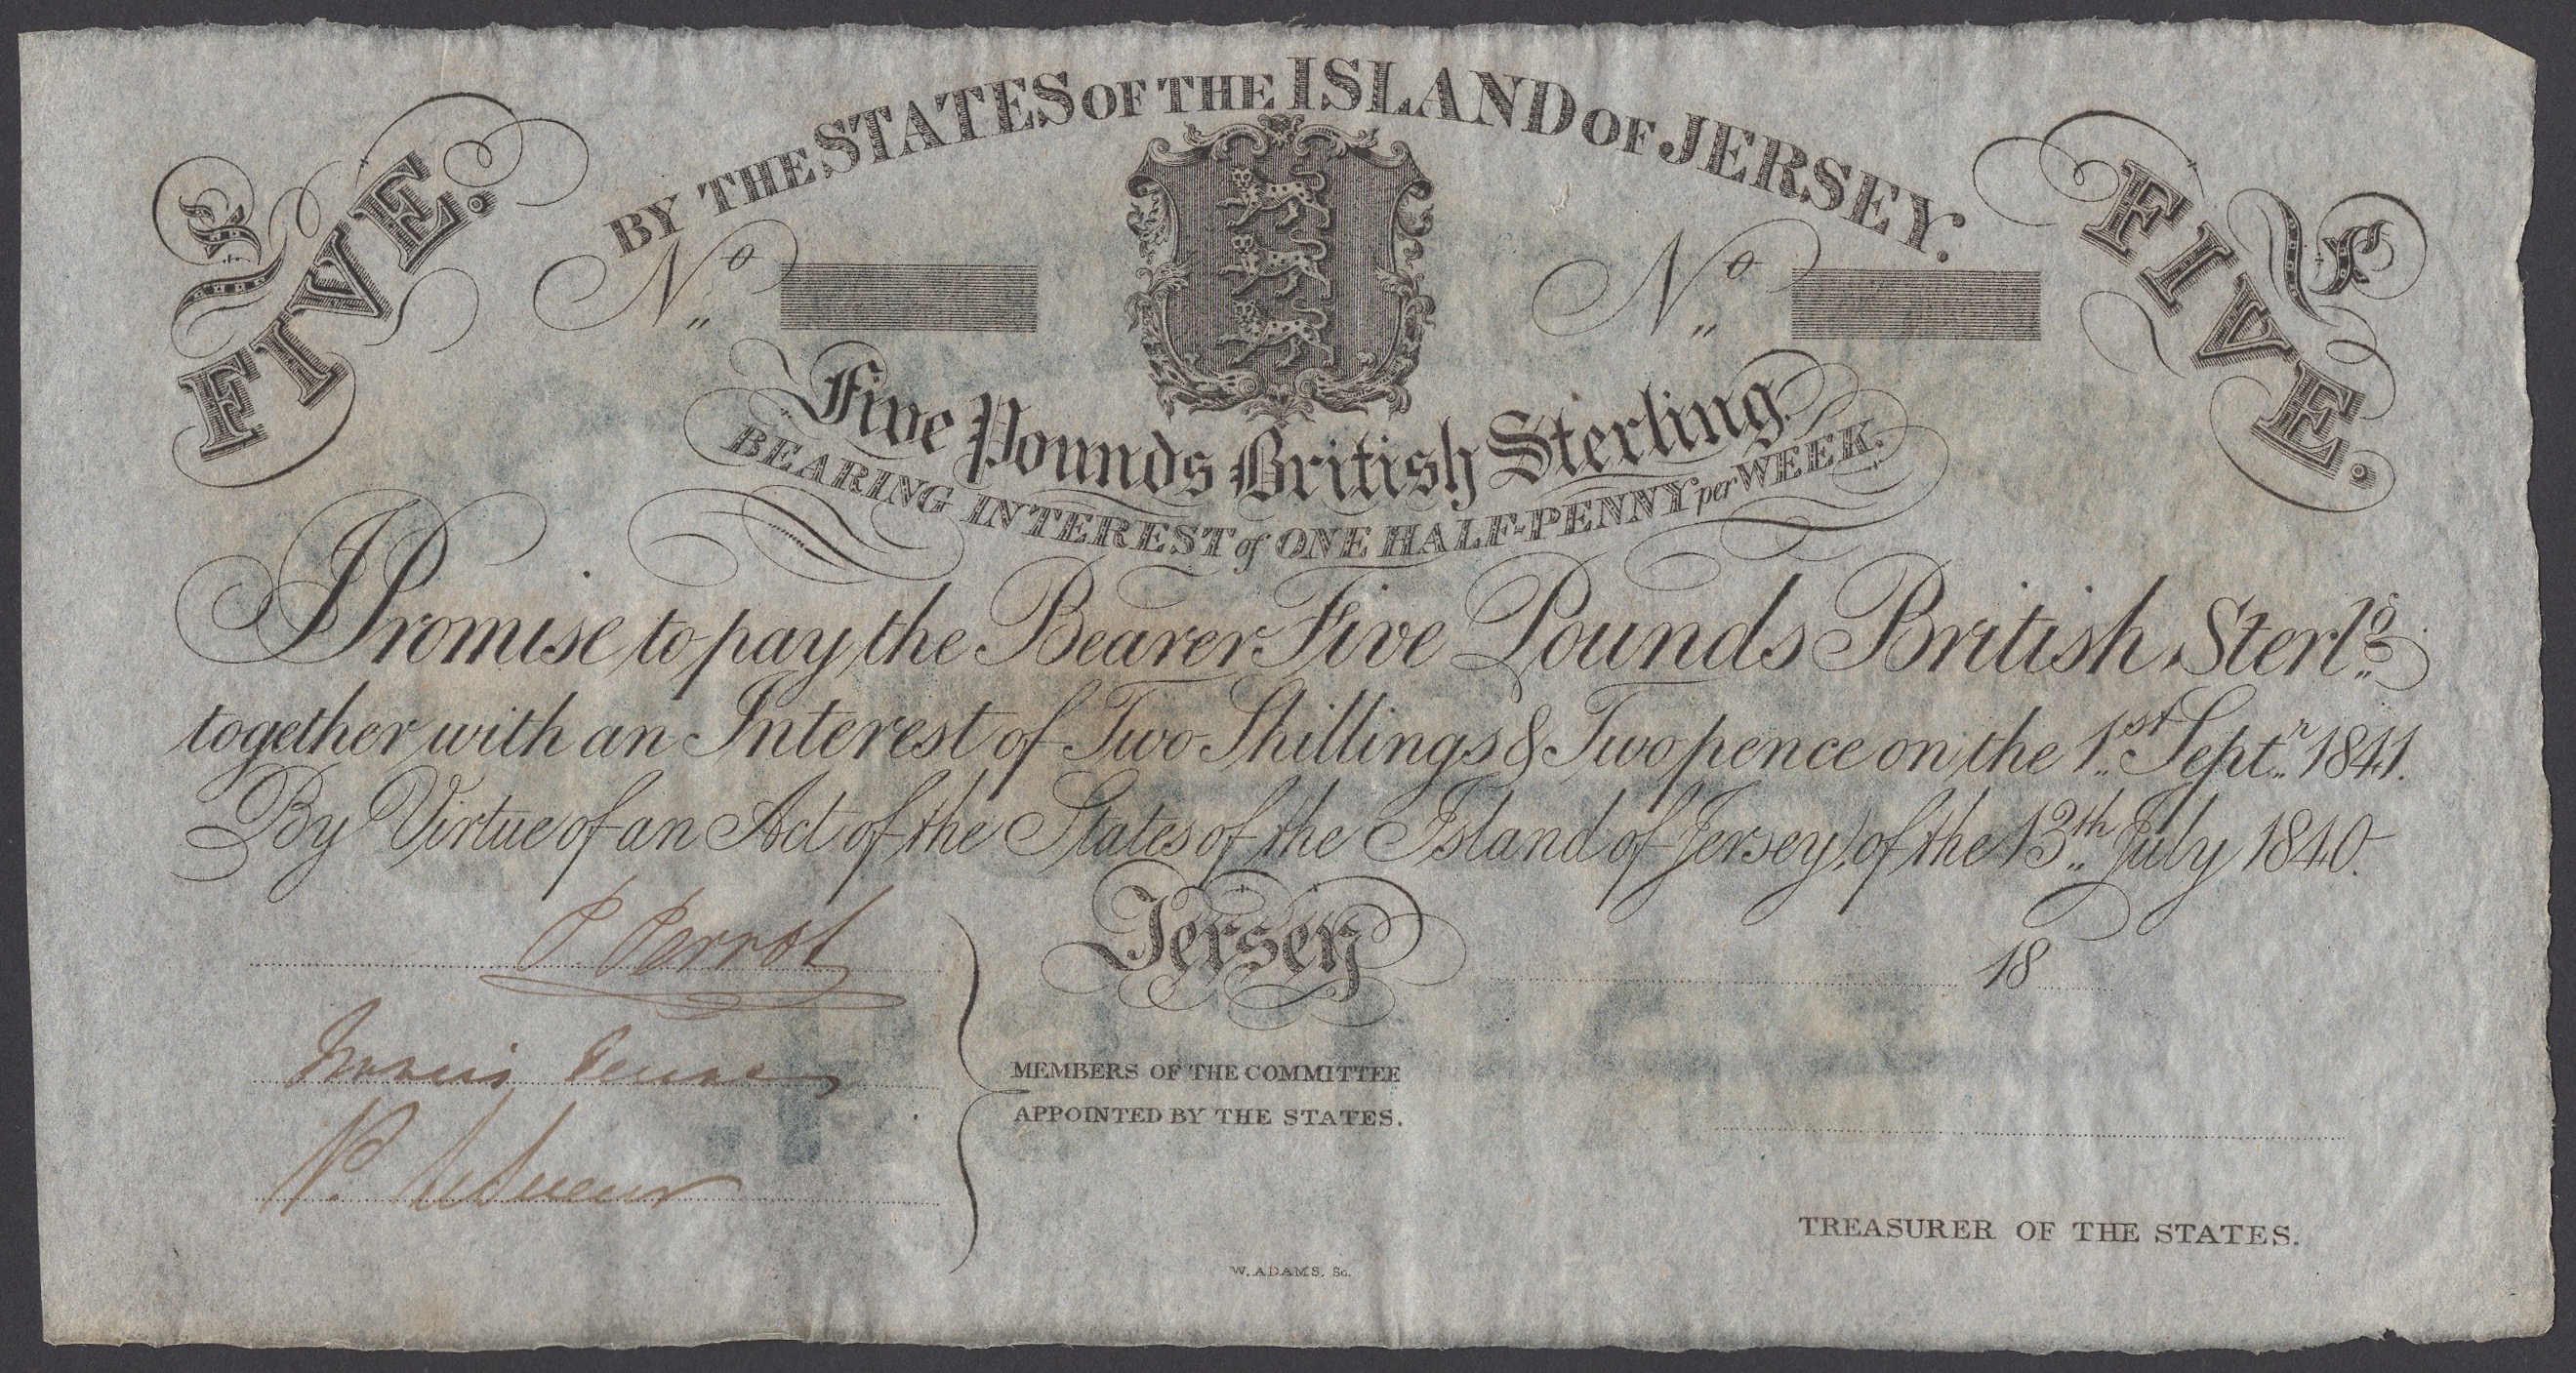 BY THE STATES OF THE ISLAND OF JERSEY.
£ FIVE.
£ FIVE.
No
No
Five Pounds British Sterling.
BEARING INTEREST of ONE HALF-PENNY per WEEK.
I Promise to pay the Bearer Five Pounds British Sterlg.
together with an Interest of Two Shillings & Twopence on the 1st Septr 1841.
By Virtue of an Act of the States of the Island of Jersey, of the 13th July 1840.
P. Perrot
Jersey 18
Francis
MEMBERS OF THE COMMITTEE
APPOINTED BY THE STATES.
P. LeSueur
TREASURER OF THE STATES.
W. ADAMS. Sc.